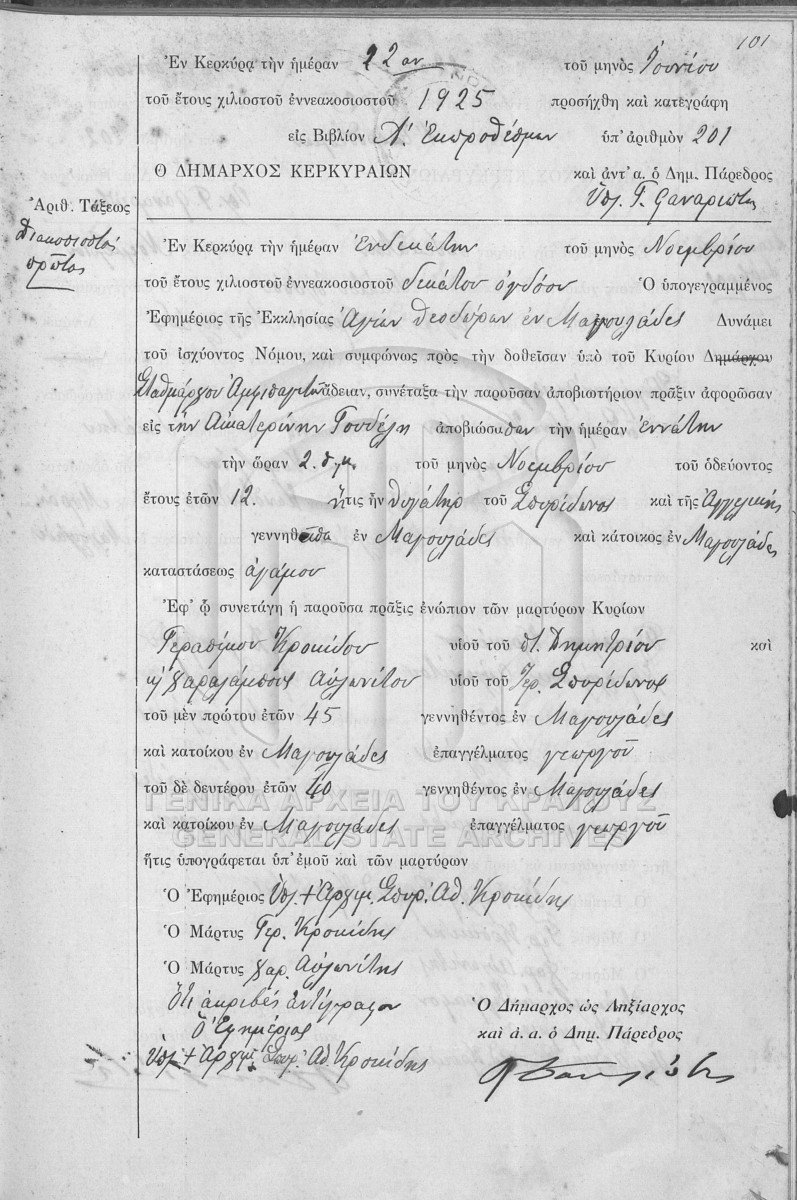 101
Ἐν Κερκύρᾳ τὴν ἡμέραν 22αν τοῦ μηνὸς Ἰουνίου
τοῦ ἔτους χιλιοστοῦ ἐννεακοσιοστοῦ 1925 προσήχθη καὶ κατεγράφη
εἰς Βιβλίον Λ. Ἐκπροθέσμων ὑπ' ἀριθμὸν 201
Ο ΔΗΜΑΡΧΟΣ ΚΕΡΚΥΡΑΙΩΝ καὶ ἀντ' α. ὁ Δημ. Πάρεδρος
Ὑπ. Γ.
Ἀριθ. Τάξεως
Διακοσιοστὸς
πρῶτος
Ἐν Κερκύρᾳ τὴν ἡμέραν Ἑνδεκάτην τοῦ μηνὸς Νοεμβρίου
τοῦ ἔτους χιλιοστοῦ ἐννεακοσιοστοῦ δεκάτου ὀγδόου Ὁ ὑπογεγραμμένος
Ἐφημέριος τῆς Ἐκκλησίας Ἁγίων Θεοδώρων ἐν Μαγουλάδες Δυνάμει
τοῦ ἰσχύοντος Νόμου, καὶ συμφώνως πρὸς τὴν δοθεῖσαν ὑπὸ τοῦ Κυρίου Δημάρχου
Σταθμάρχου ἄδειαν, συνέταξα τὴν παροῦσαν ἀποβιωτήριον πρᾶξιν ἀφορῶσαν
εἰς τὴν Αἰκατερίνην Γουδέλη ἀποβιώσασαν τὴν ἡμέραν ἐννάτην
τὴν ὥραν 2. μ.μ. τοῦ μηνὸς Νοεμβρίου τοῦ ὁδεύοντος
ἔτους ἐτῶν 12. ἥτις ἦν θυγάτηρ τοῦ Σπυρίδωνος καὶ τῆς Ἀγγελικῆς
γεννηθεῖσα ἐν Μαγουλάδες καὶ κάτοικος ἐν Μαγουλάδες
καταστάσεως ἀγάμου
Ἐφ' ᾧ συνετάγη ἡ παροῦσα πρᾶξις ἐνώπιον τῶν μαρτύρων Κυρίων
Γερασίμου Κροκίδου υἱοῦ τοῦ Δημητρίου καὶ
Χαραλάμπους Αὐλωνίτου υἱοῦ τοῦ Ἱερ. Σπυρίδωνος
τοῦ μὲν πρώτου ἐτῶν 45 γεννηθέντος ἐν Μαγουλάδες
καὶ κατοίκου ἐν Μαγουλάδες ἐπαγγέλματος γεωργοῦ
τοῦ δὲ δευτέρου ἐτῶν 40 γεννηθέντος ἐν Μαγουλάδες
ΓΕΝΙΚΑ ΑΡΧΕΙΑ ΤΟΥ ΚΡΑΤΟΥΣ
καὶ κατοίκου ἐν Μαγουλάδες ἐπαγγέλματος γεωργοῦ
GENERAL STATE ARCHIVES
ἥτις ὑπογράφεται ὑπ' ἐμοῦ καὶ τῶν μαρτύρων
Ὁ Ἐφημέριος Ὑπ. + Ἀρχιμ. Σπυρ. Ἀθ. Κροκίδης
Ὁ Μάρτυς Γερ. Κροκίδης
Ὁ Μάρτυς Χαρ. Αὐλωνίτης
Ὅτι ἀκριβὲς ἀντίγραφον
Ὁ Ἐφημέριος
Ὑπ. + Ἀρχιμ. Σπυρ. Ἀθ. Κροκίδης
Ὁ Δήμαρχος ὡς Ληξίαρχος
καὶ ἀ. α. ὁ Δημ. Πάρεδρος